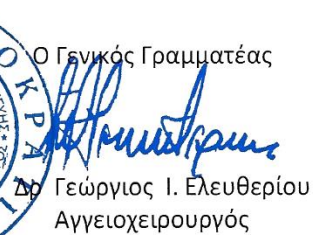 Ο Γενικός Γραμματέας
Δρ Γεώργιος Ι. Ελευθερίου
Αγγειοχειρουργός